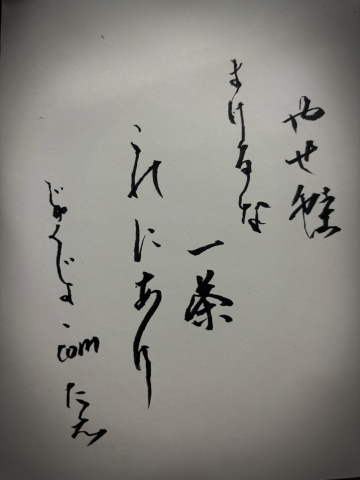 やせ蛙
まけるな
一茶
これにあり
じゅくじょ.com